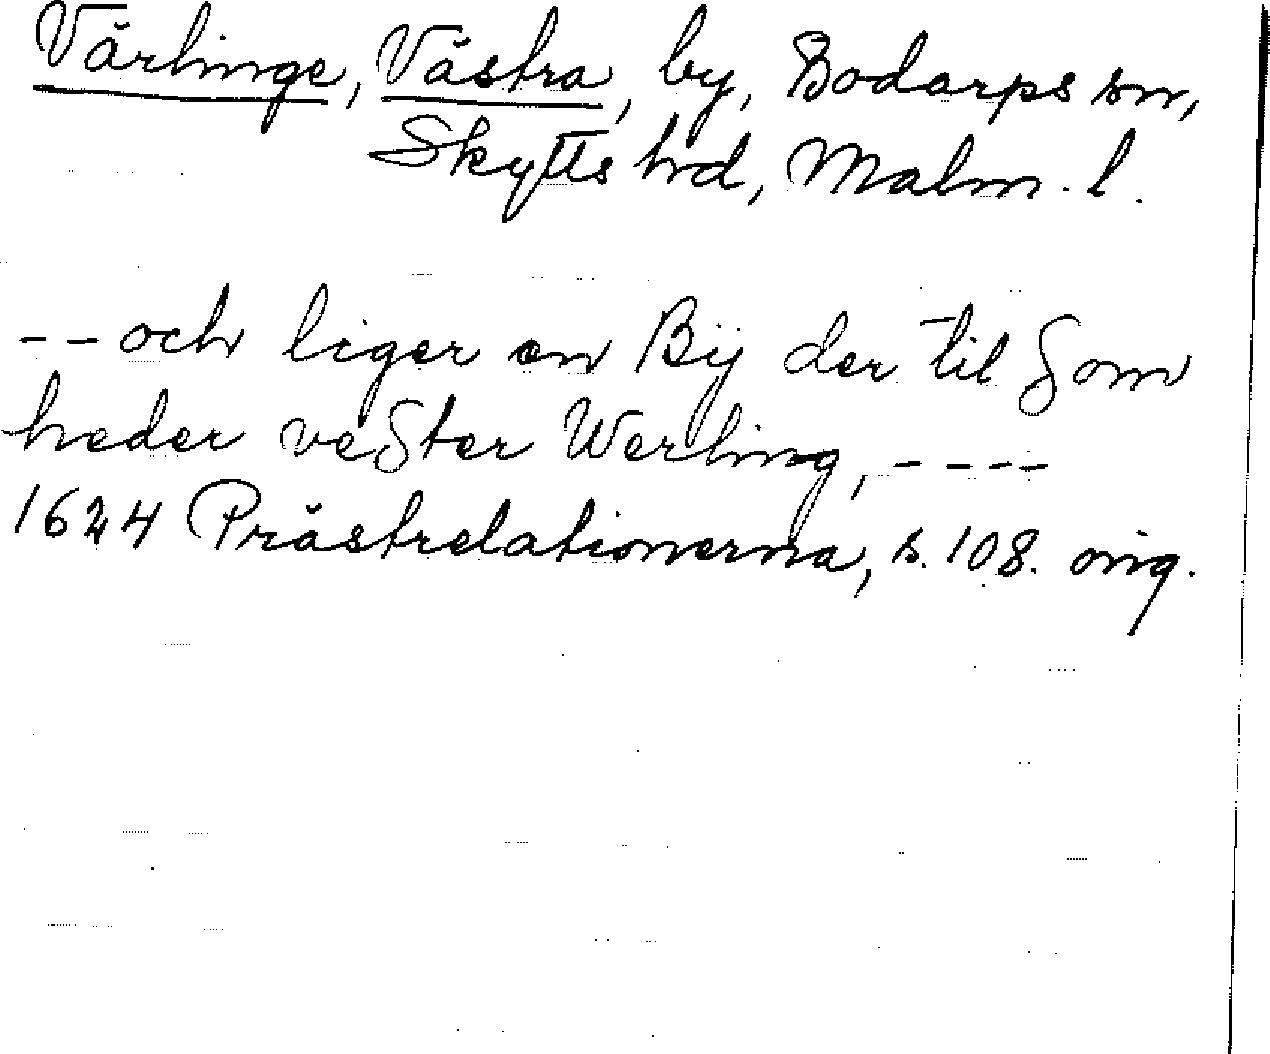 Värlinge, Västra, by, Bodarps sn,
Skytts hd, Malm. l.
-- och liger en Bÿ der til som
heder vester Werling, ----
1624 Prästrelationerna, s. 108. orig.